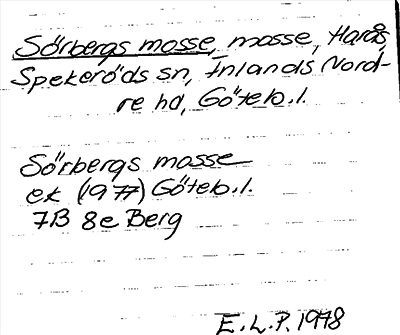 Sörbergs mosse, mosse, Harås,
Spekeröds sn, Inlands Nord-
re hd, Göteb.l.
Sörbergs mosse
ek (1977) Göteb.l.
7B 8e Berg
E.L.P. 1978